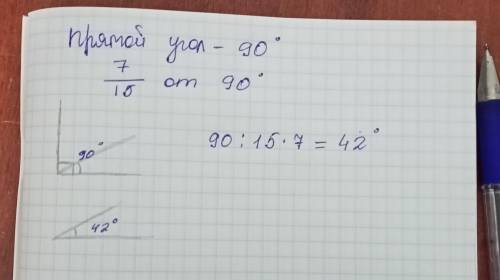 прямой угол - 90°
7/15 от 90°
90°
90 : 15 · 7 = 42°
42°